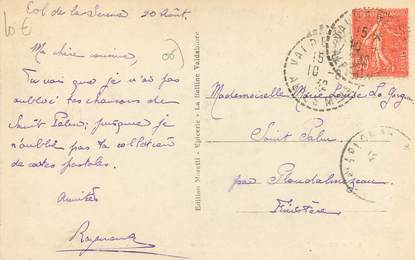 Col de la 20 Août.
Ma chère cousine,
Tu vois que je n'ai pas
oublié les chansons de
Saint Pabu, puisque je
n'oublie pas ta collection
de cartes postales.
Amitiés
Raymond
Edition Moretti - Epicerie - La Bolline Valdeblore
Mademoiselle Marie Louise Le
Saint Pabu
par Ploudalmézeau
Finistère